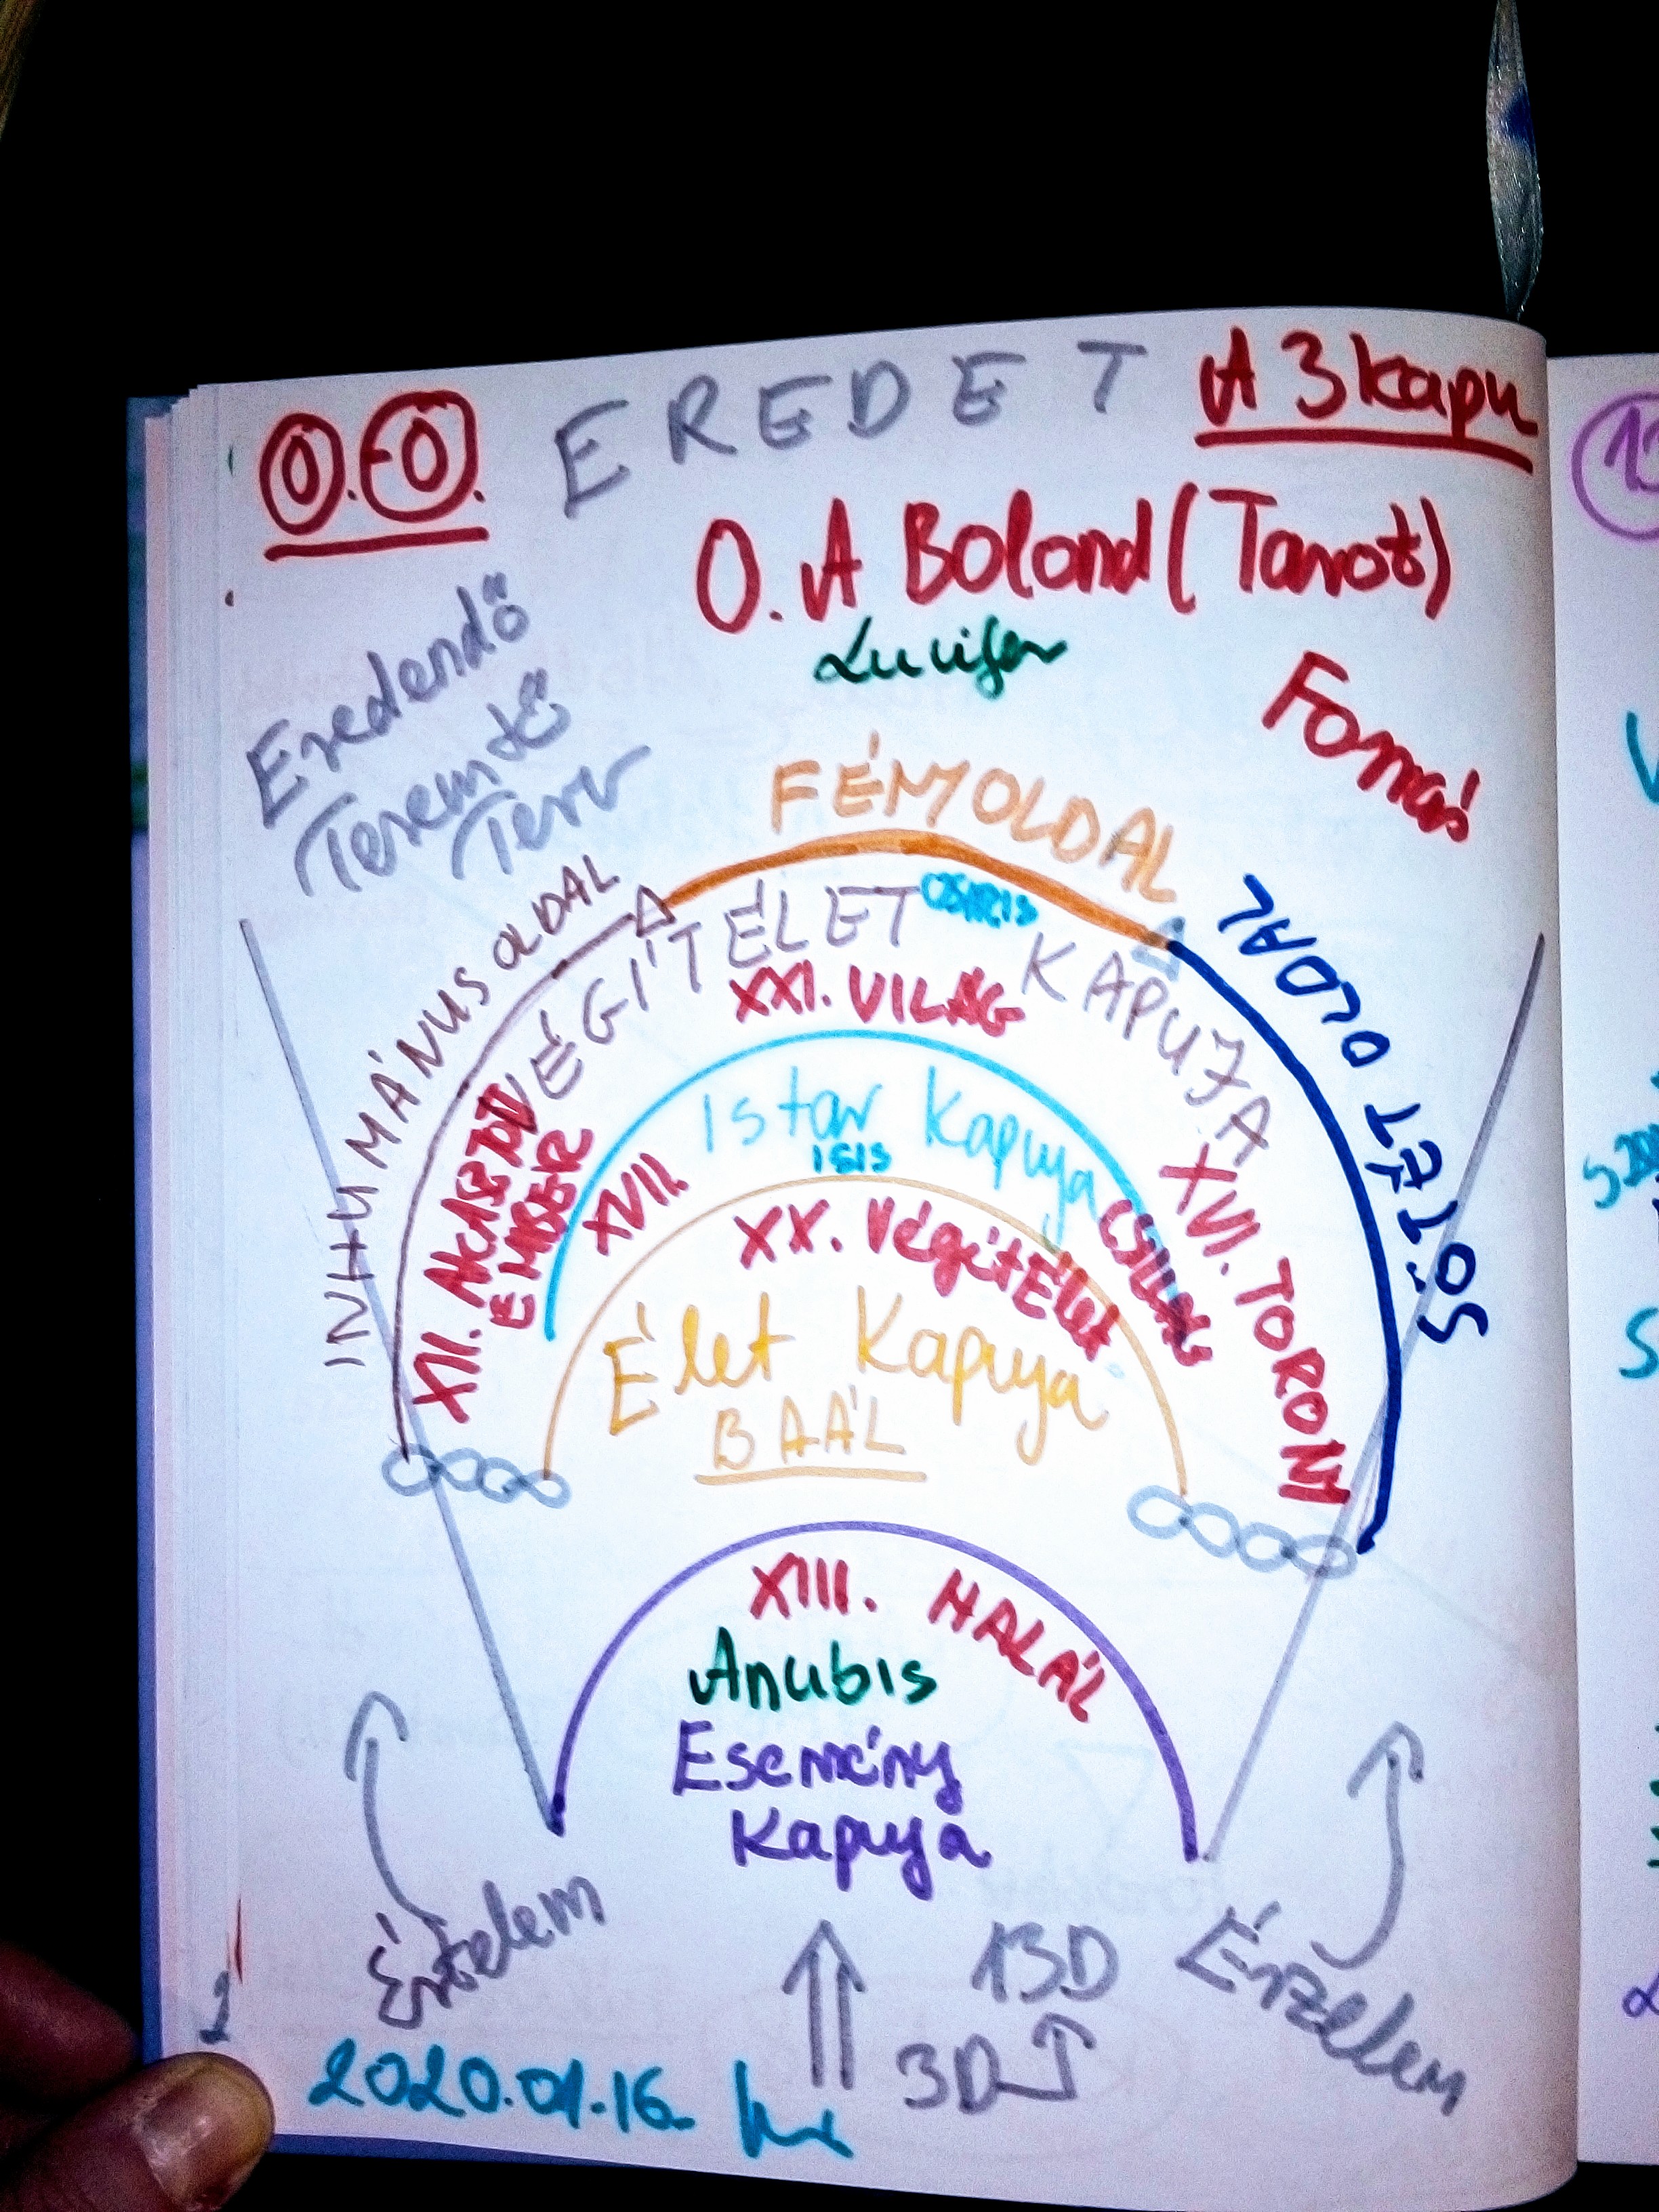 0.-0. EREDET A 3 kapu
0. A Bolond (Tarot)
Lucifer
Eredendő
Teremtő
Terv
Forrás
FÉNYOLDAL
INHUMÁNUS OLDAL
SÖTÉT OLDAL
VÉGÍTÉLET KAPUJA
OSIRIS
XXI. VILÁG
XII. AKASZTOTT
EMBER
XVI. TORONY
Istar Kapuja
ISIS
XVII. CSILLAG
XX. VégítÉlet
Élet Kapuja
BAÁL
XIII. HALÁL
Anubis
Esemény
Kapuja
Értelem
Érzelem
13D
3D
2020.01.16.